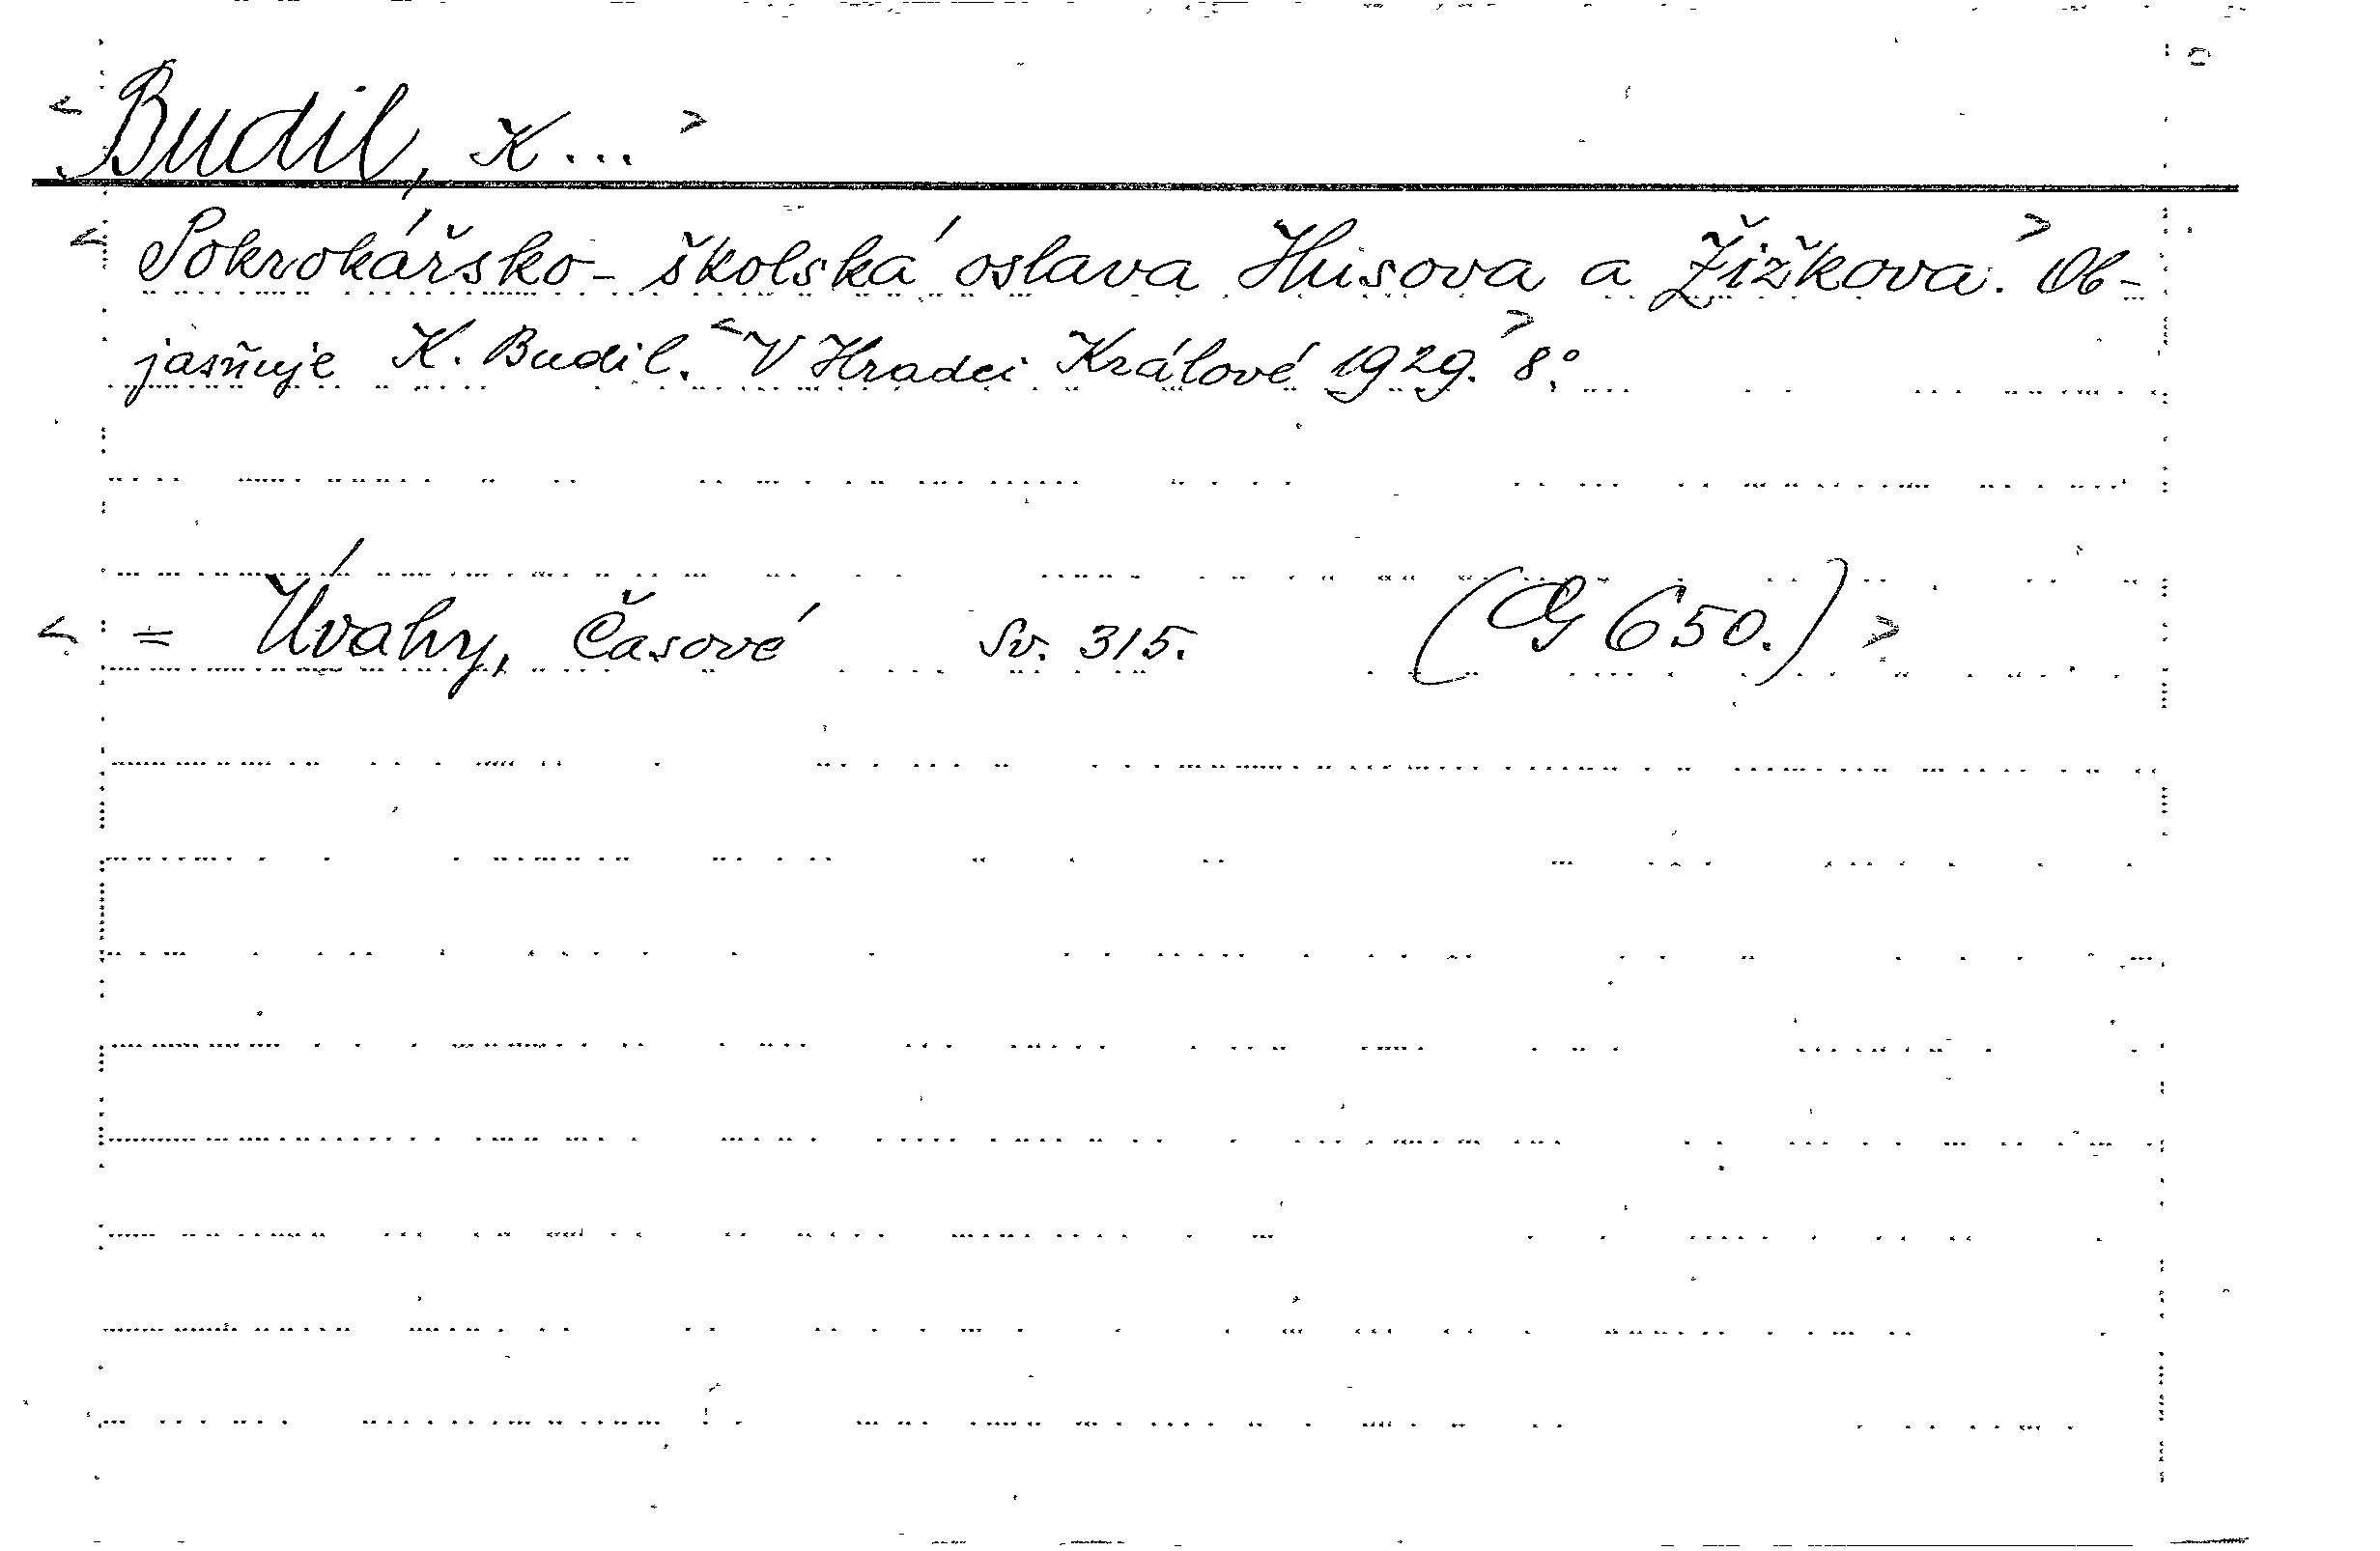 < Budil, K... >
< Pokrokářsko-školská oslava Husova a Žižkova. > Ob-
jasňuje K. Budil. < V Hradci Králové 1929. > 8°.
< = Úvahy, Časové Sv. 315. (G 650.) >